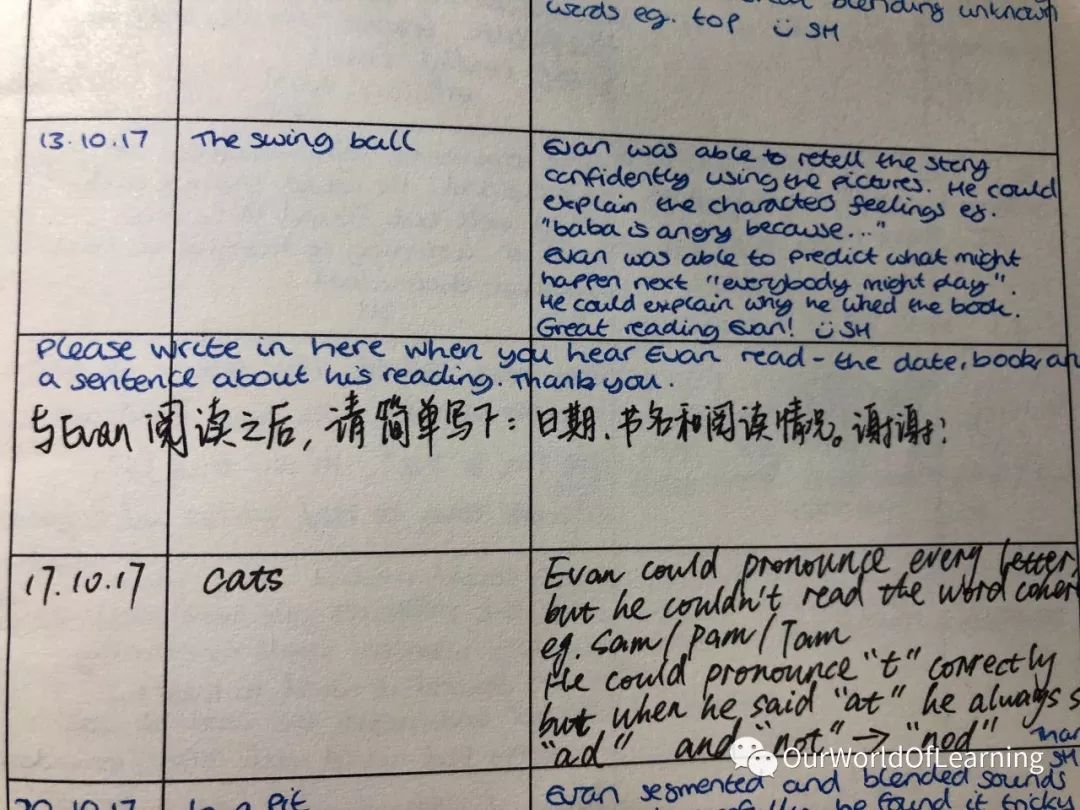 blending unknown
words eg. top SH
13.10.17
The swing ball
Evan was able to retell the story
confidently using the pictures. He could
explain the characters feelings eg.
"baba is angry because..."
Evan was able to predict what might
happen next "everybody might play".
He could explain why he liked the book.
Great reading Evan! SH
Please write in here when you hear Evan read - the date, book, an
a sentence about his reading. Thank you.
与Evan阅读之后，请简单写下：日期、书名和阅读情况。谢谢！
17.10.17
cats
Evan could pronounce every letter,
but he couldn't read the word coher
eg. Sam/Pam/Tam
He could pronounce "t" correctly
but when he said "at" he always s
"ad" and "not" → "nod"
SH
OurWorldOfLearning
20.10.17
In a pit
Evan segmented and blended sounds
he found it tricky